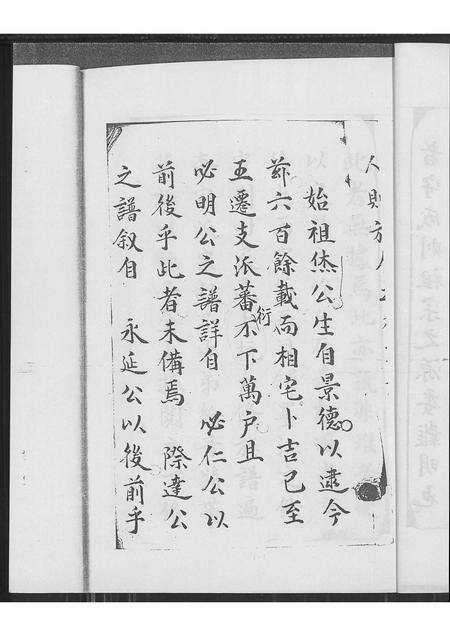 人則方人
始祖傑公生自景德以逮今
茲六百餘載而相宅卜吉已至
五遷支派蕃衍不下萬戶且
必明公之譜詳自 必仁公以
前後乎此者未備焉 際達公
之譜叙自 永延公以後前乎